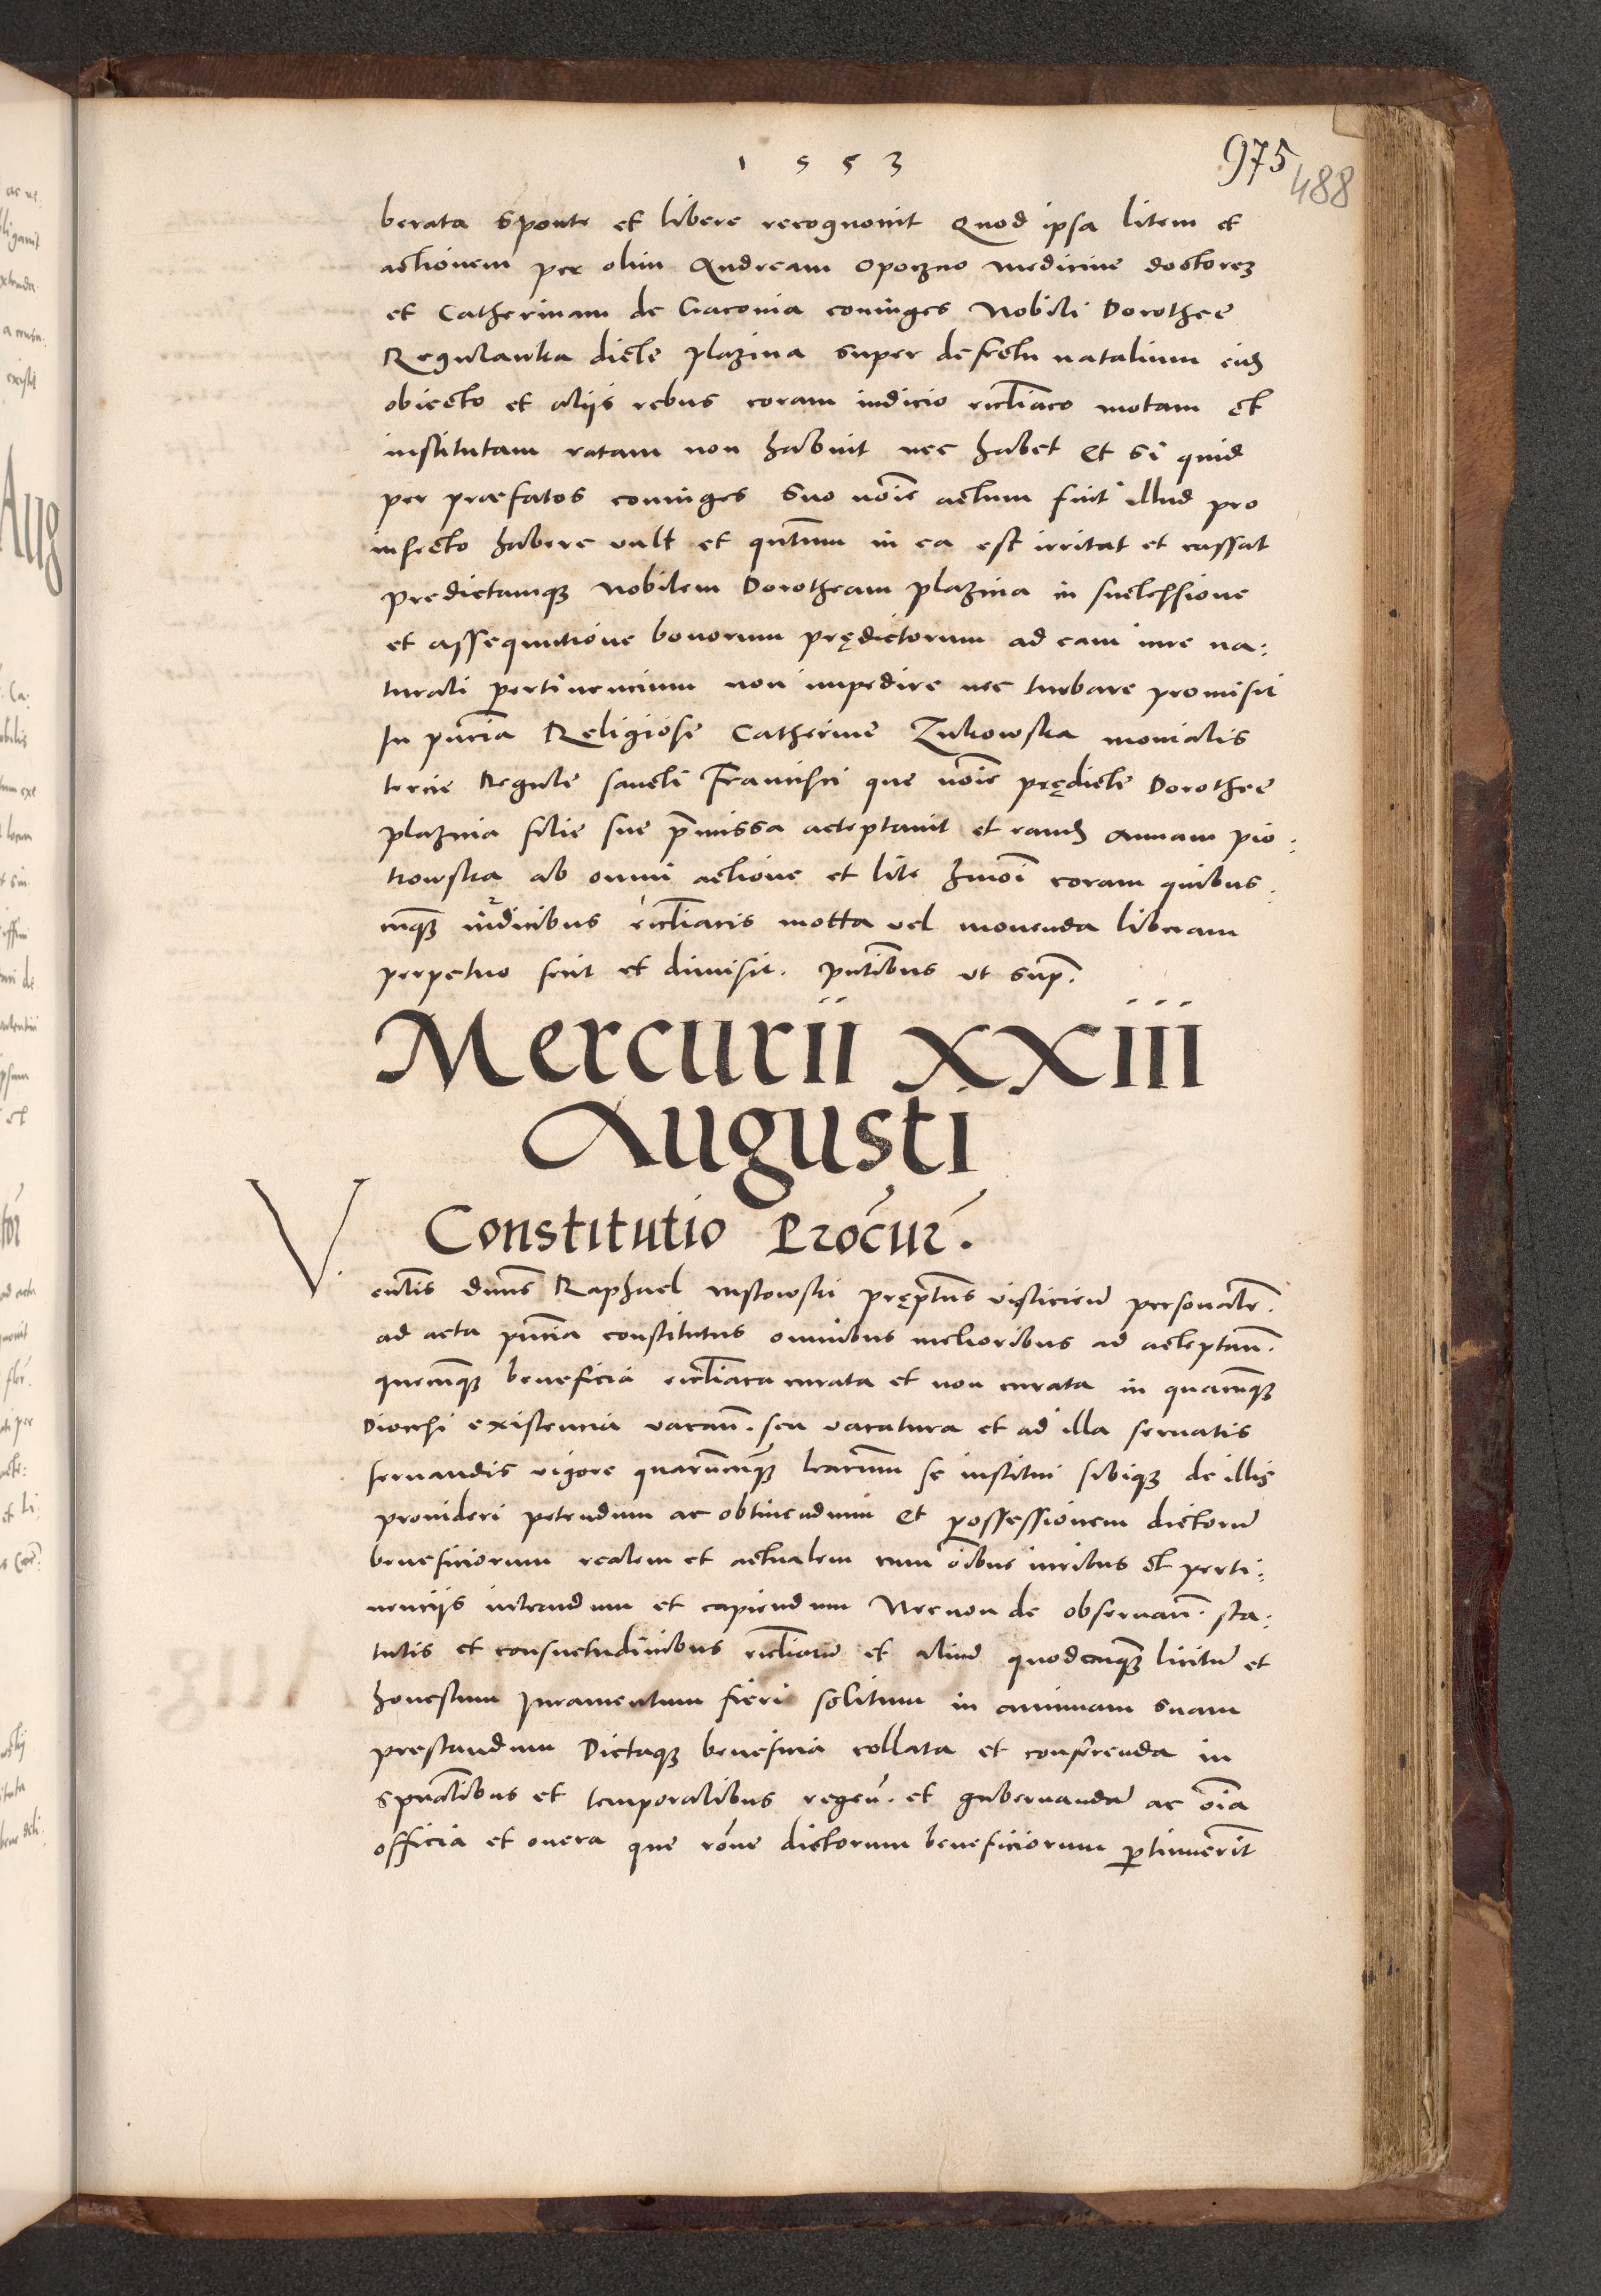 1553
975
488
berata sponte et libere recognovit Quod ipsa litem et
actionem per olim Andream Opoczno medicine doctorez
et Catherinam de Cracovia coniuges Nobili Dorothee
Regulanka dicte plaznia super defectu natalium eidem
obiecto et aliis rebus coram iudicio ecctiastico motam et
institutam ratam non habuit nec habet Et si quid
per praefatos coniuges suo noie actum fuit illud pro
infecto habere vult et qntum in ea est irritat et cassat
predictamque Nobilem Dorotheam plaznia in successione
et assequutione bonorum prędictorum ad eam iure na:
turali pertinencium non impedire nec turbare promisit
In pncia Religiose Catherine Zukowska monialis
tercie Regule sancti Francisci que noie prędicte Dorothee
plaznia filie sue pmissa acceptavit et eandem Annam pio:
trowska ab omni actione et lite hmoi coram quibus:
cunque iudicibus eccliacis motta vel movenda liberam
perpetuo fecit et dimisit. pntibus ut sup.
Mercurii XXIII
Augusti
Constitutio Procur.
V
enlis dnus Raphael prępitus visliciens personale.
ad acta pncia constitutus omnibus melioribus ad acceptan.
quecunque beneficia eccliaca curata et non curata in quacunque
Diocesi existencia vacan. seu vacatura et ad illa servatis
servandis vigore quarumcunque lrarum se institui sibique de illis
provideri petendum ac obtinendum Et possessionem dictoru
beneficiorum realem et actualem cum oibus iuribus et perti:
nenciis intrandum et capiendum Necnon de observan. sta:
tutis et consuetudinibus eccliaru et aliud quodcunque licitu et
honestum Iuramentum fieri solitum in animam suam
prestandum Dictaque beneficia collata et conferenda in
spualibus et temporalibus regen. et gubernandu ac oia
officia et onera que roue dictorum beneficiorum ptinuerit